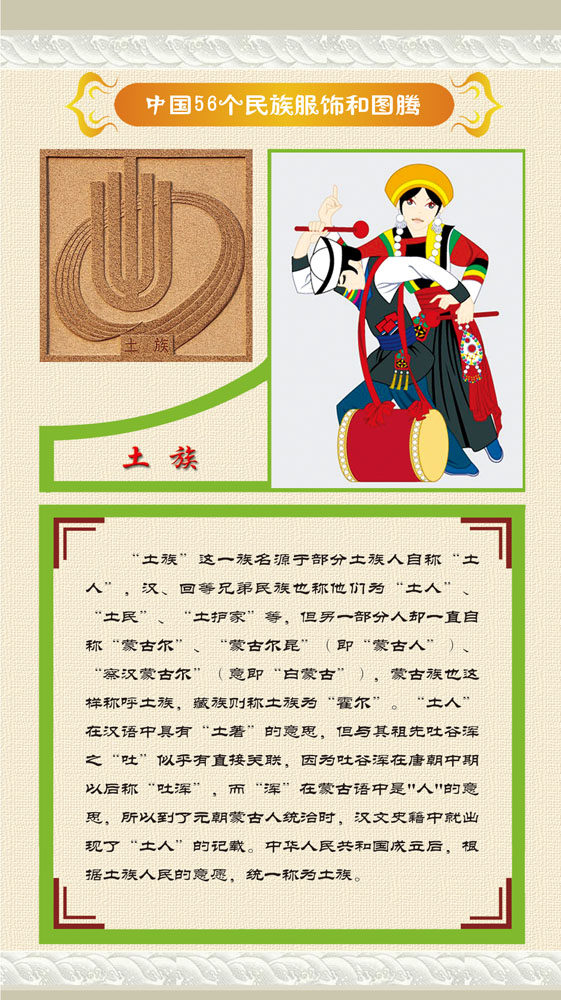 中国56个民族服饰和图腾
土 族
土 族
“土族”这一族名源于部分土族人自称“土
人”，汉、回等兄弟民族也称他们为“土人”、
“土民”、“土护家”等，但另一部分人却一直自
称“蒙古尔”、“蒙古尔昆”（即“蒙古人”）、
“察汉蒙古尔”（意即“白蒙古”），蒙古族也这
样称呼土族，藏族则称土族为“霍尔”。“土人”
在汉语中具有“土著”的意思，但与其祖先吐谷浑
之“吐”似乎有直接关联，因为吐谷浑在唐朝中期
以后称“吐浑”，而“浑”在蒙古语中是"人"的意
思，所以到了元朝蒙古人统治时，汉文史籍中就出
现了“土人”的记载。中华人民共和国成立后，根
据土族人民的意愿，统一称为土族。